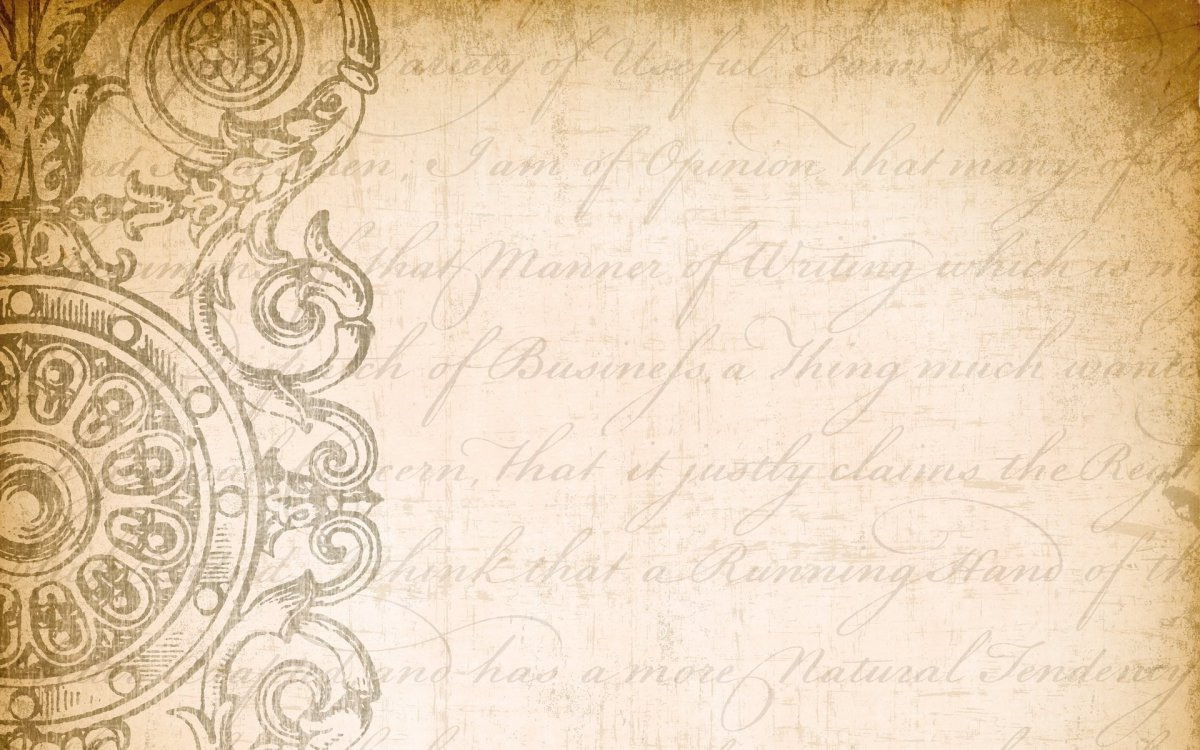 a Variety of Useful Forms practiced
men, I am of Opinion that many of
that Manner of Writing which is
of Busineſs, a Thing much
That it justly claims the
think that a Running Hand of
and has a more Natural Tendency